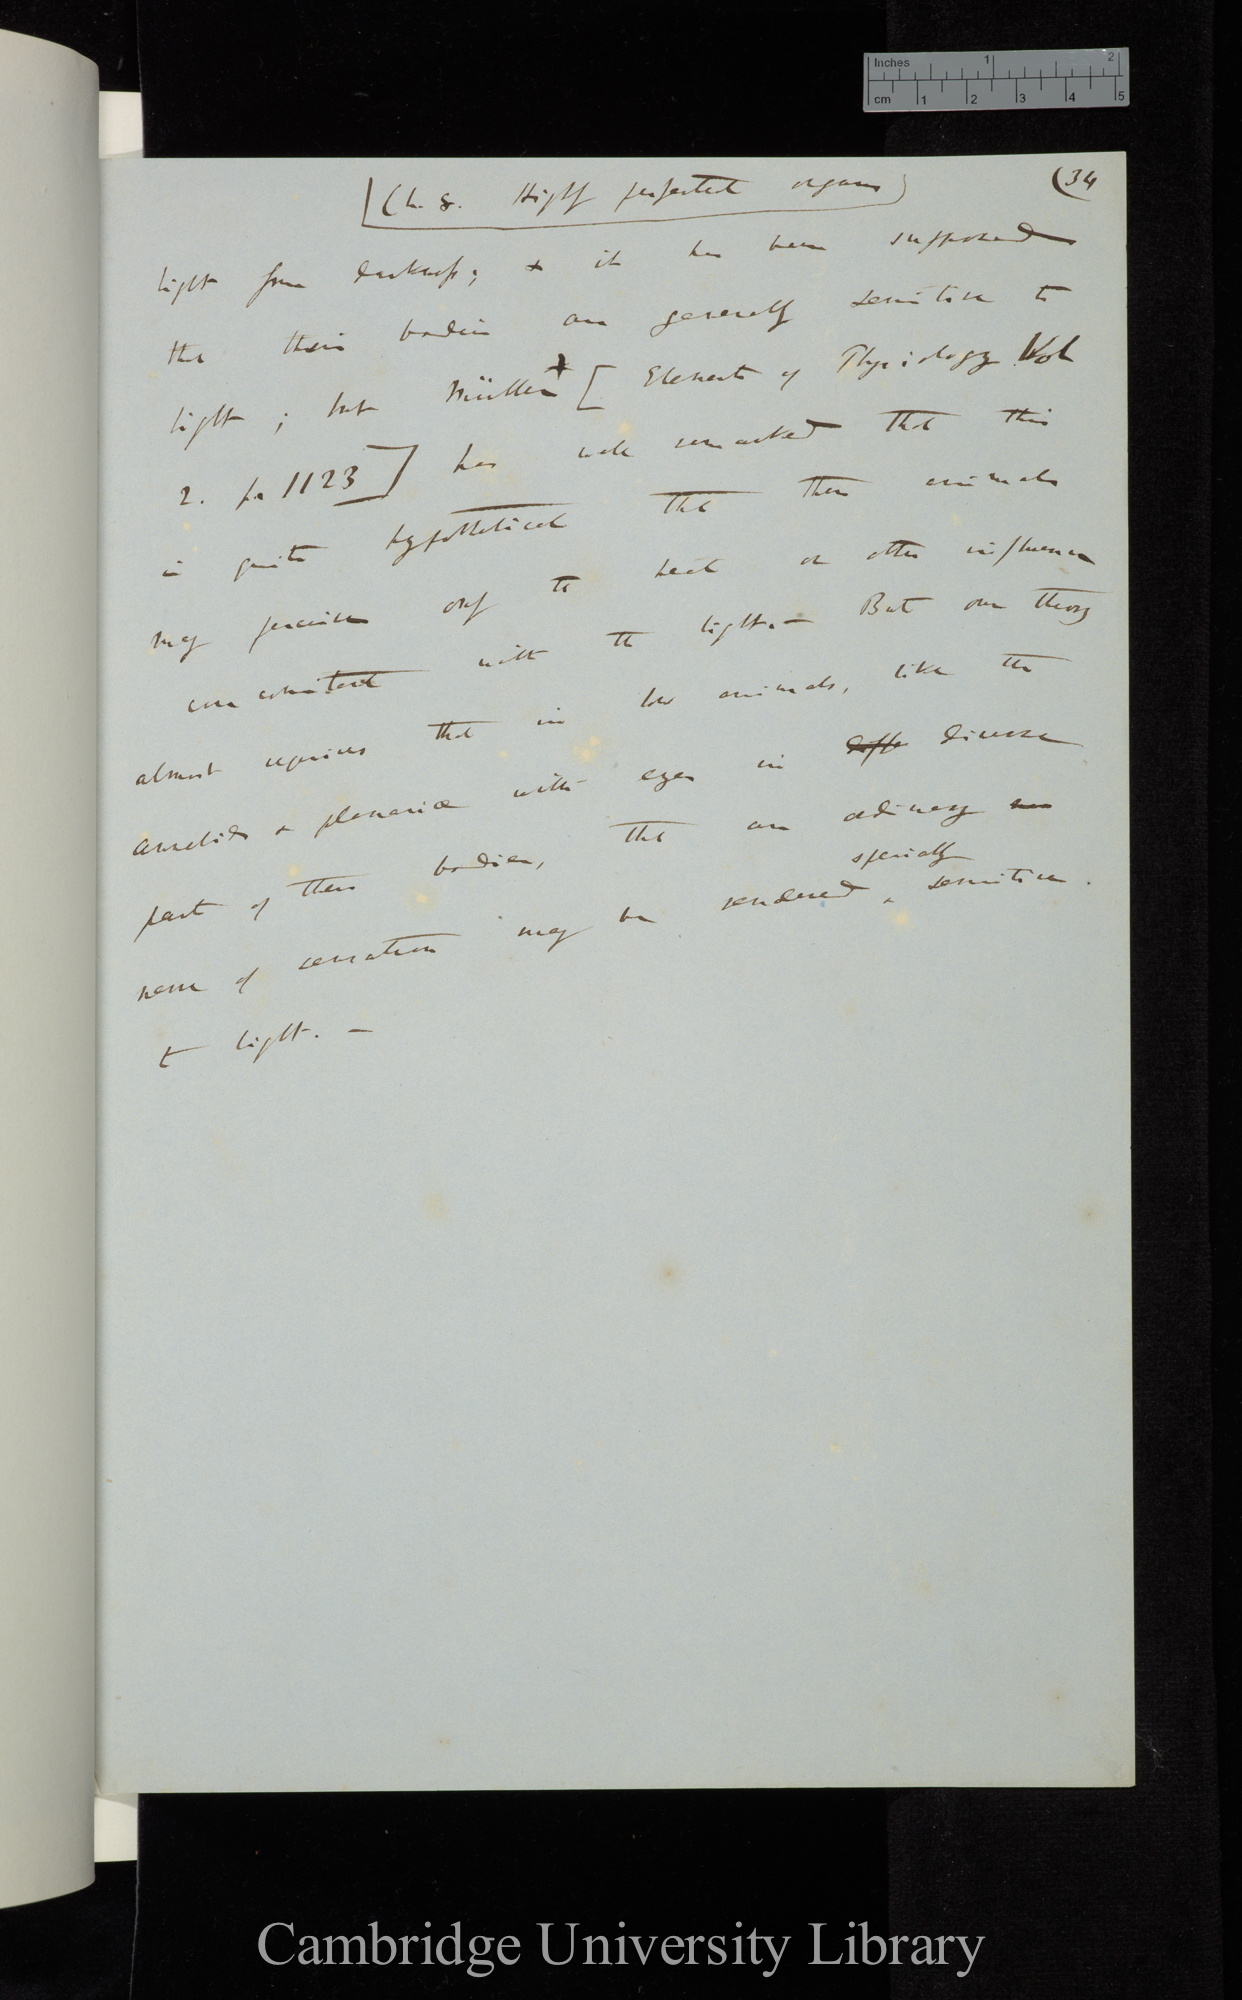 Inches 1 2
cm 1 2 3 4 5
(Ch. 8. Highly perfected organs)
(34
light from darkness; & it has been supposed
that their bodies are generally sensitive to
light; but Müller [Elements of Physiology Vol
2. p. 1123] has well remarked that this
is quite hypothetical that these animals
may perceive only to heat or other influence
concomitant with the light.— But our theory
almost requires that in low animals, like the
annelids & planariæ with eyes in diff diverse
part of their bodies, that an ordinary
specially
nerve of sensation may be rendered ^ sensitive.
to light. —
Cambridge University Library